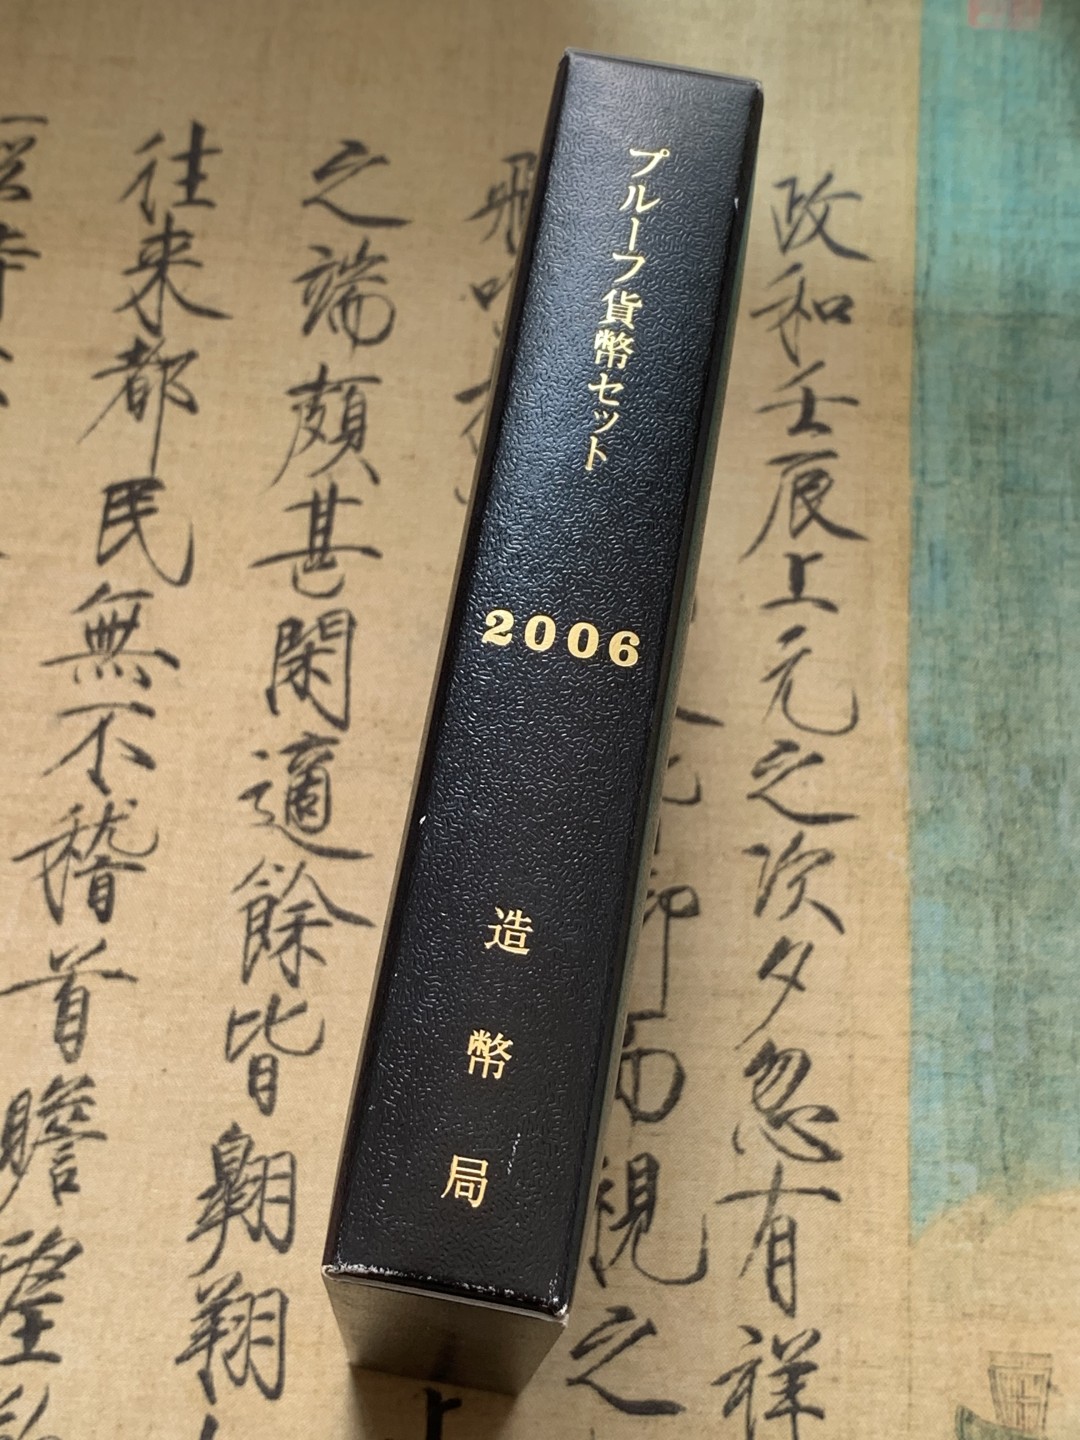 プルーフ貨幣セット
2006
造幣局
政和壬辰上元之次夕忽有祥
之端頗甚閑適餘皆翱翔
往来都民無不稽首瞻望